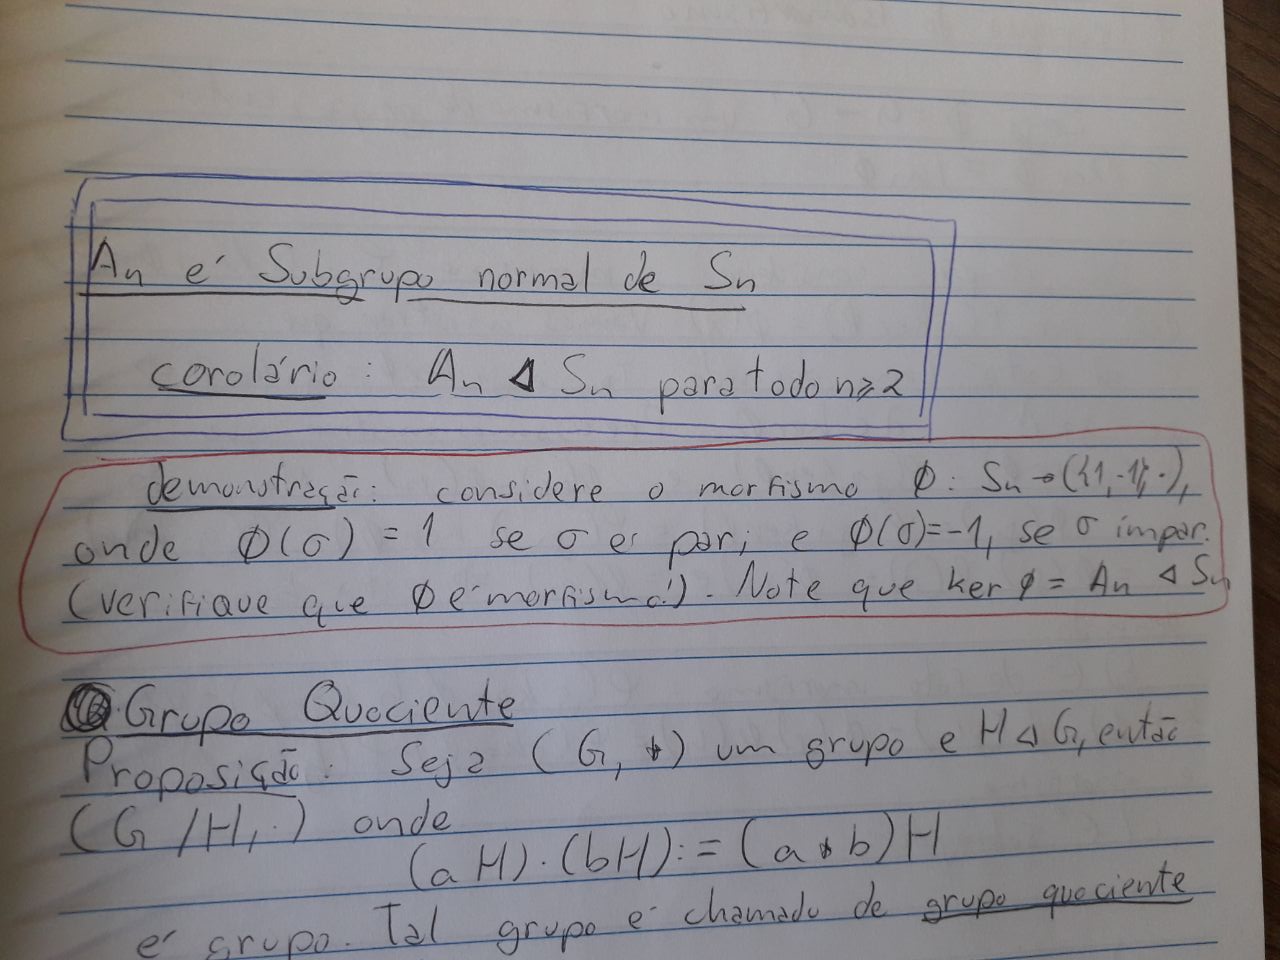 An é Subgrupo normal de Sn
corolário: An ⊲ Sn para todo n≥2
demonstração: considere o morfismo ϕ: Sn → ({1,-1}, ·),
onde ϕ(σ) = 1 se σ é par; e ϕ(σ)=-1, se σ ímpar.
(verifique que ϕ é morfismo!). Note que ker ϕ = An ⊲ Sn
Grupo Quociente
Proposição: Seja (G, *) um grupo e H ⊲ G, então
(G/H, ·) onde
(aH)·(bH):=(a*b)H
é grupo. Tal grupo é chamado de grupo quociente